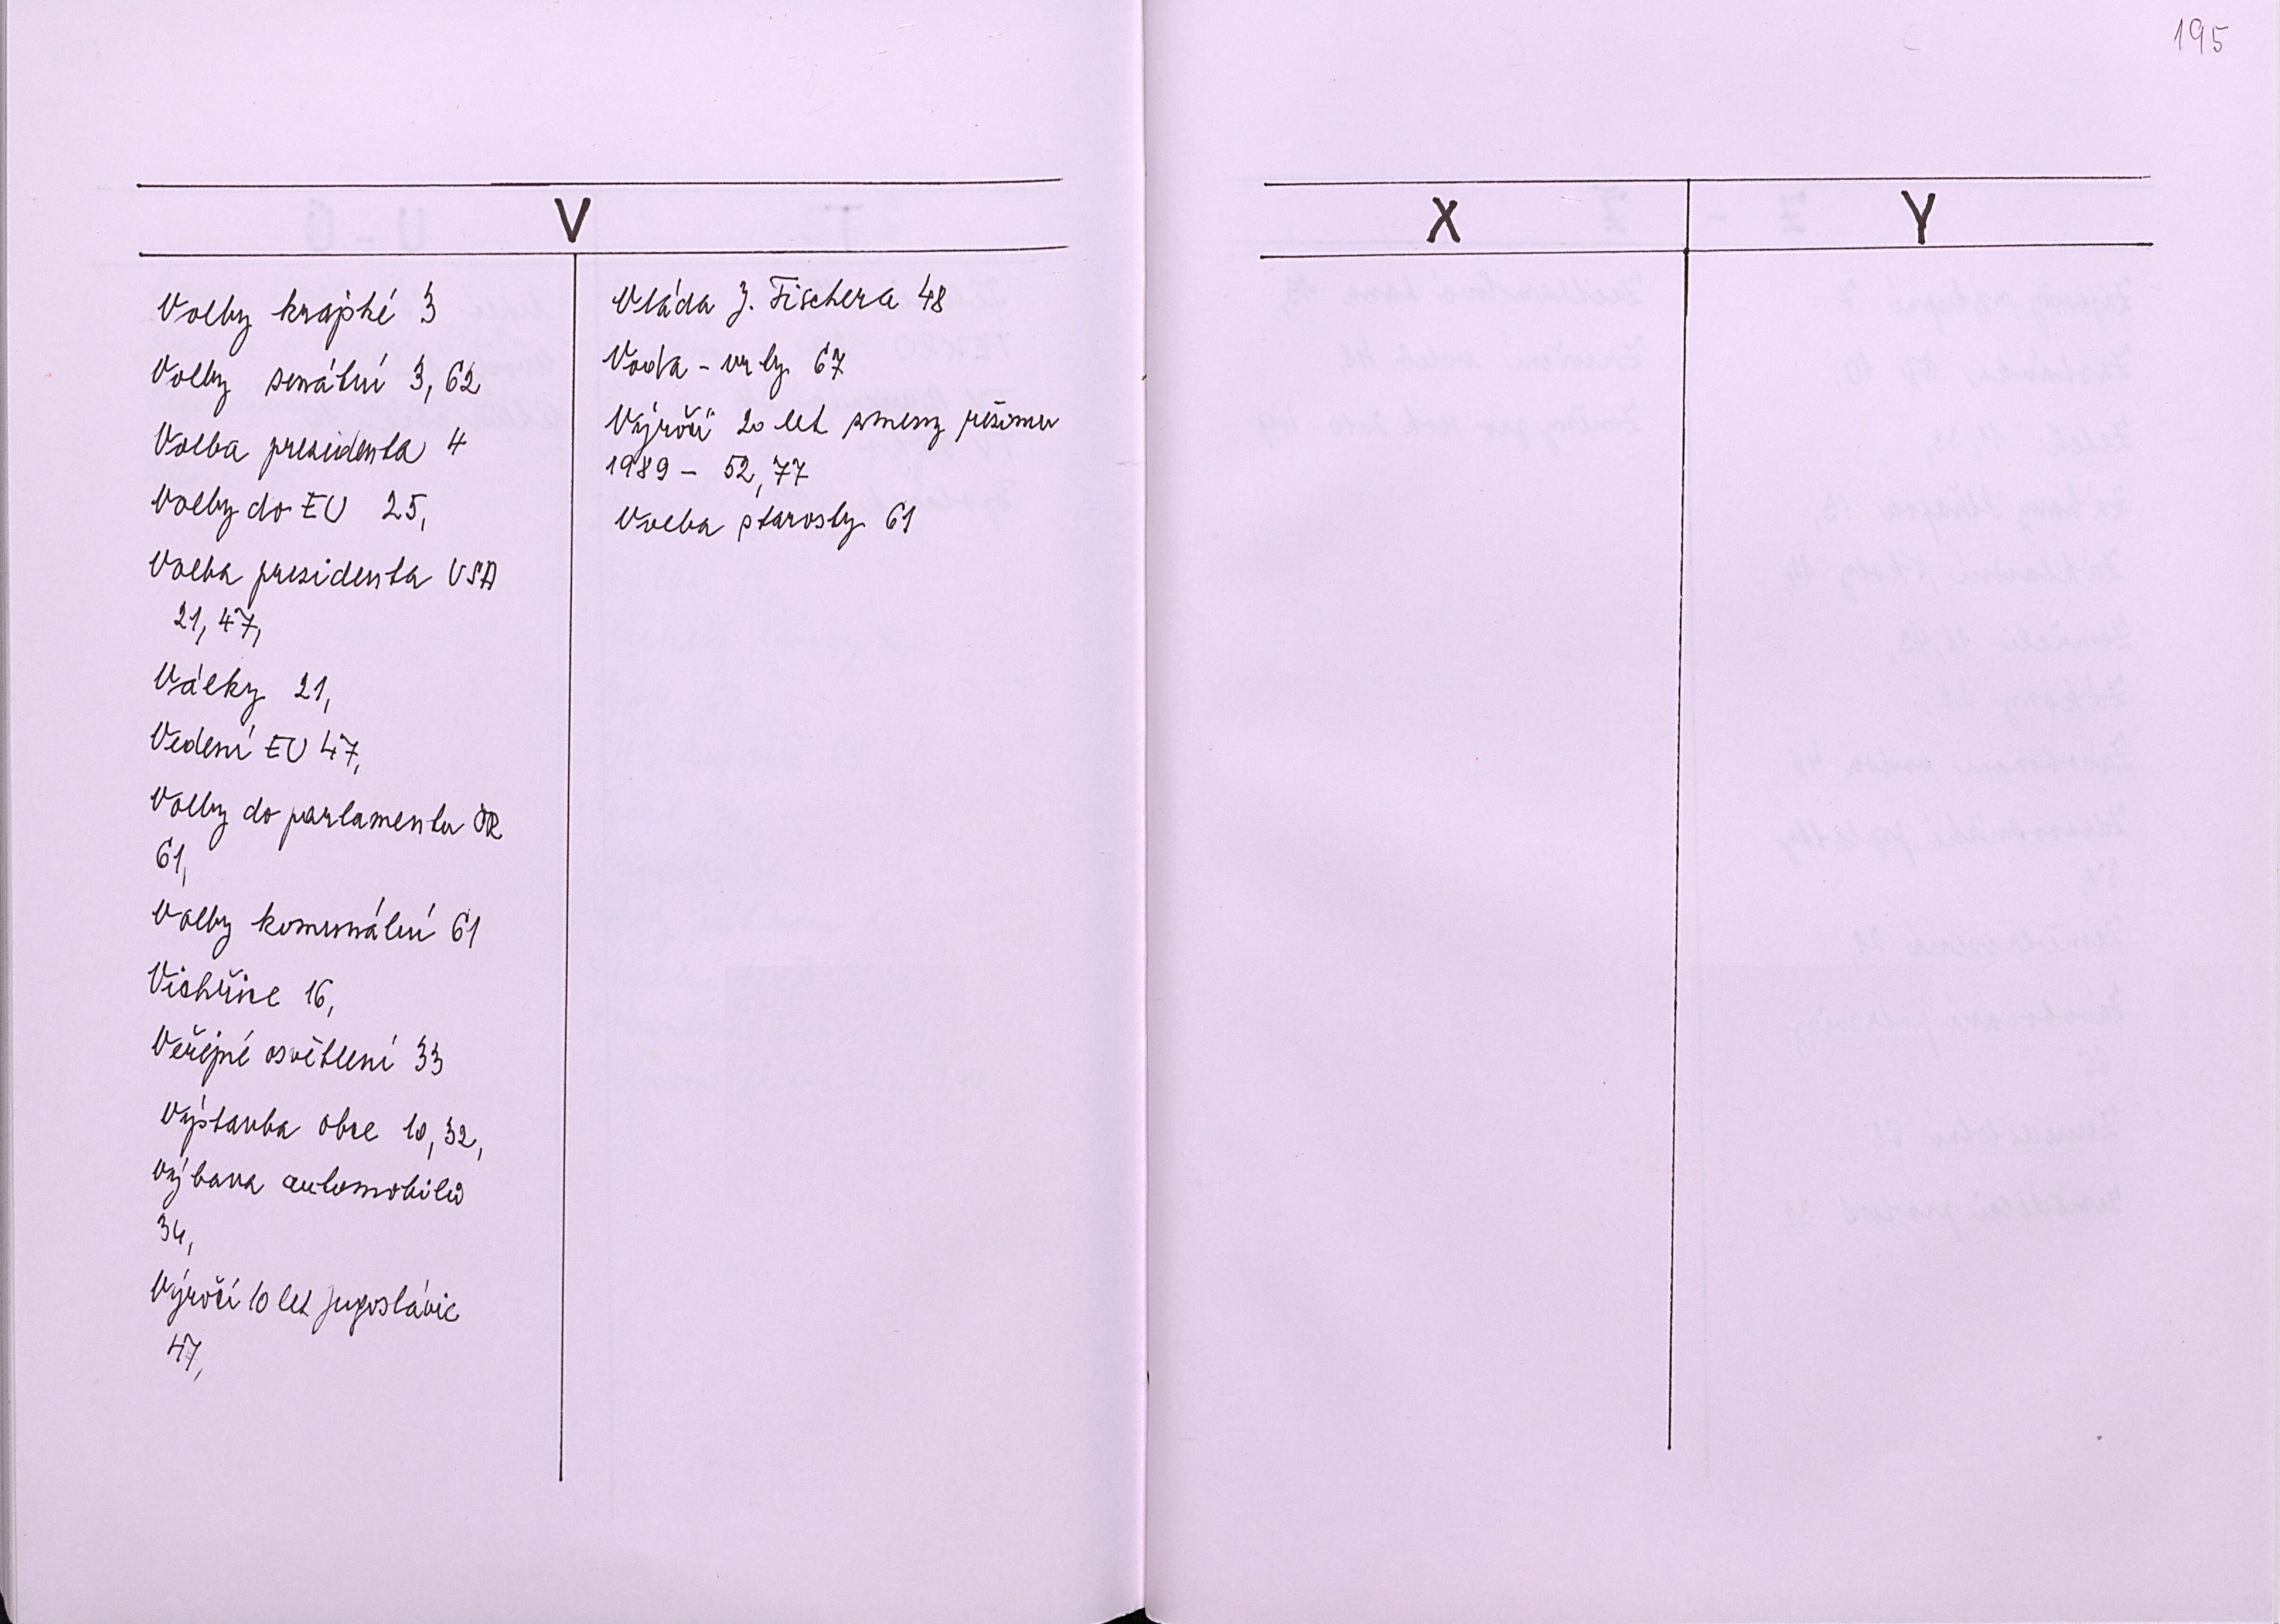 195
V
Volby krajské 3
Volby senátní 3, 62
Volba presidenta 4
Volby do EU 25,
Volba presidenta USA
21, 47,
Války 21,
Vedení EU 47,
Volby do parlamentu ČR
61,
Volby komunální 61
Vichřice 16,
Veřejné osvětlení 33
Výstavba obce 10, 32,
Výbava automobilů
34,
Výročí 10 let Jugoslávie
47,
Vláda J. Fischera 48
Voda - vrty 67
Výročí 20 let změny režimu
1989 - 52, 77
Volba starosty 61
X
Y